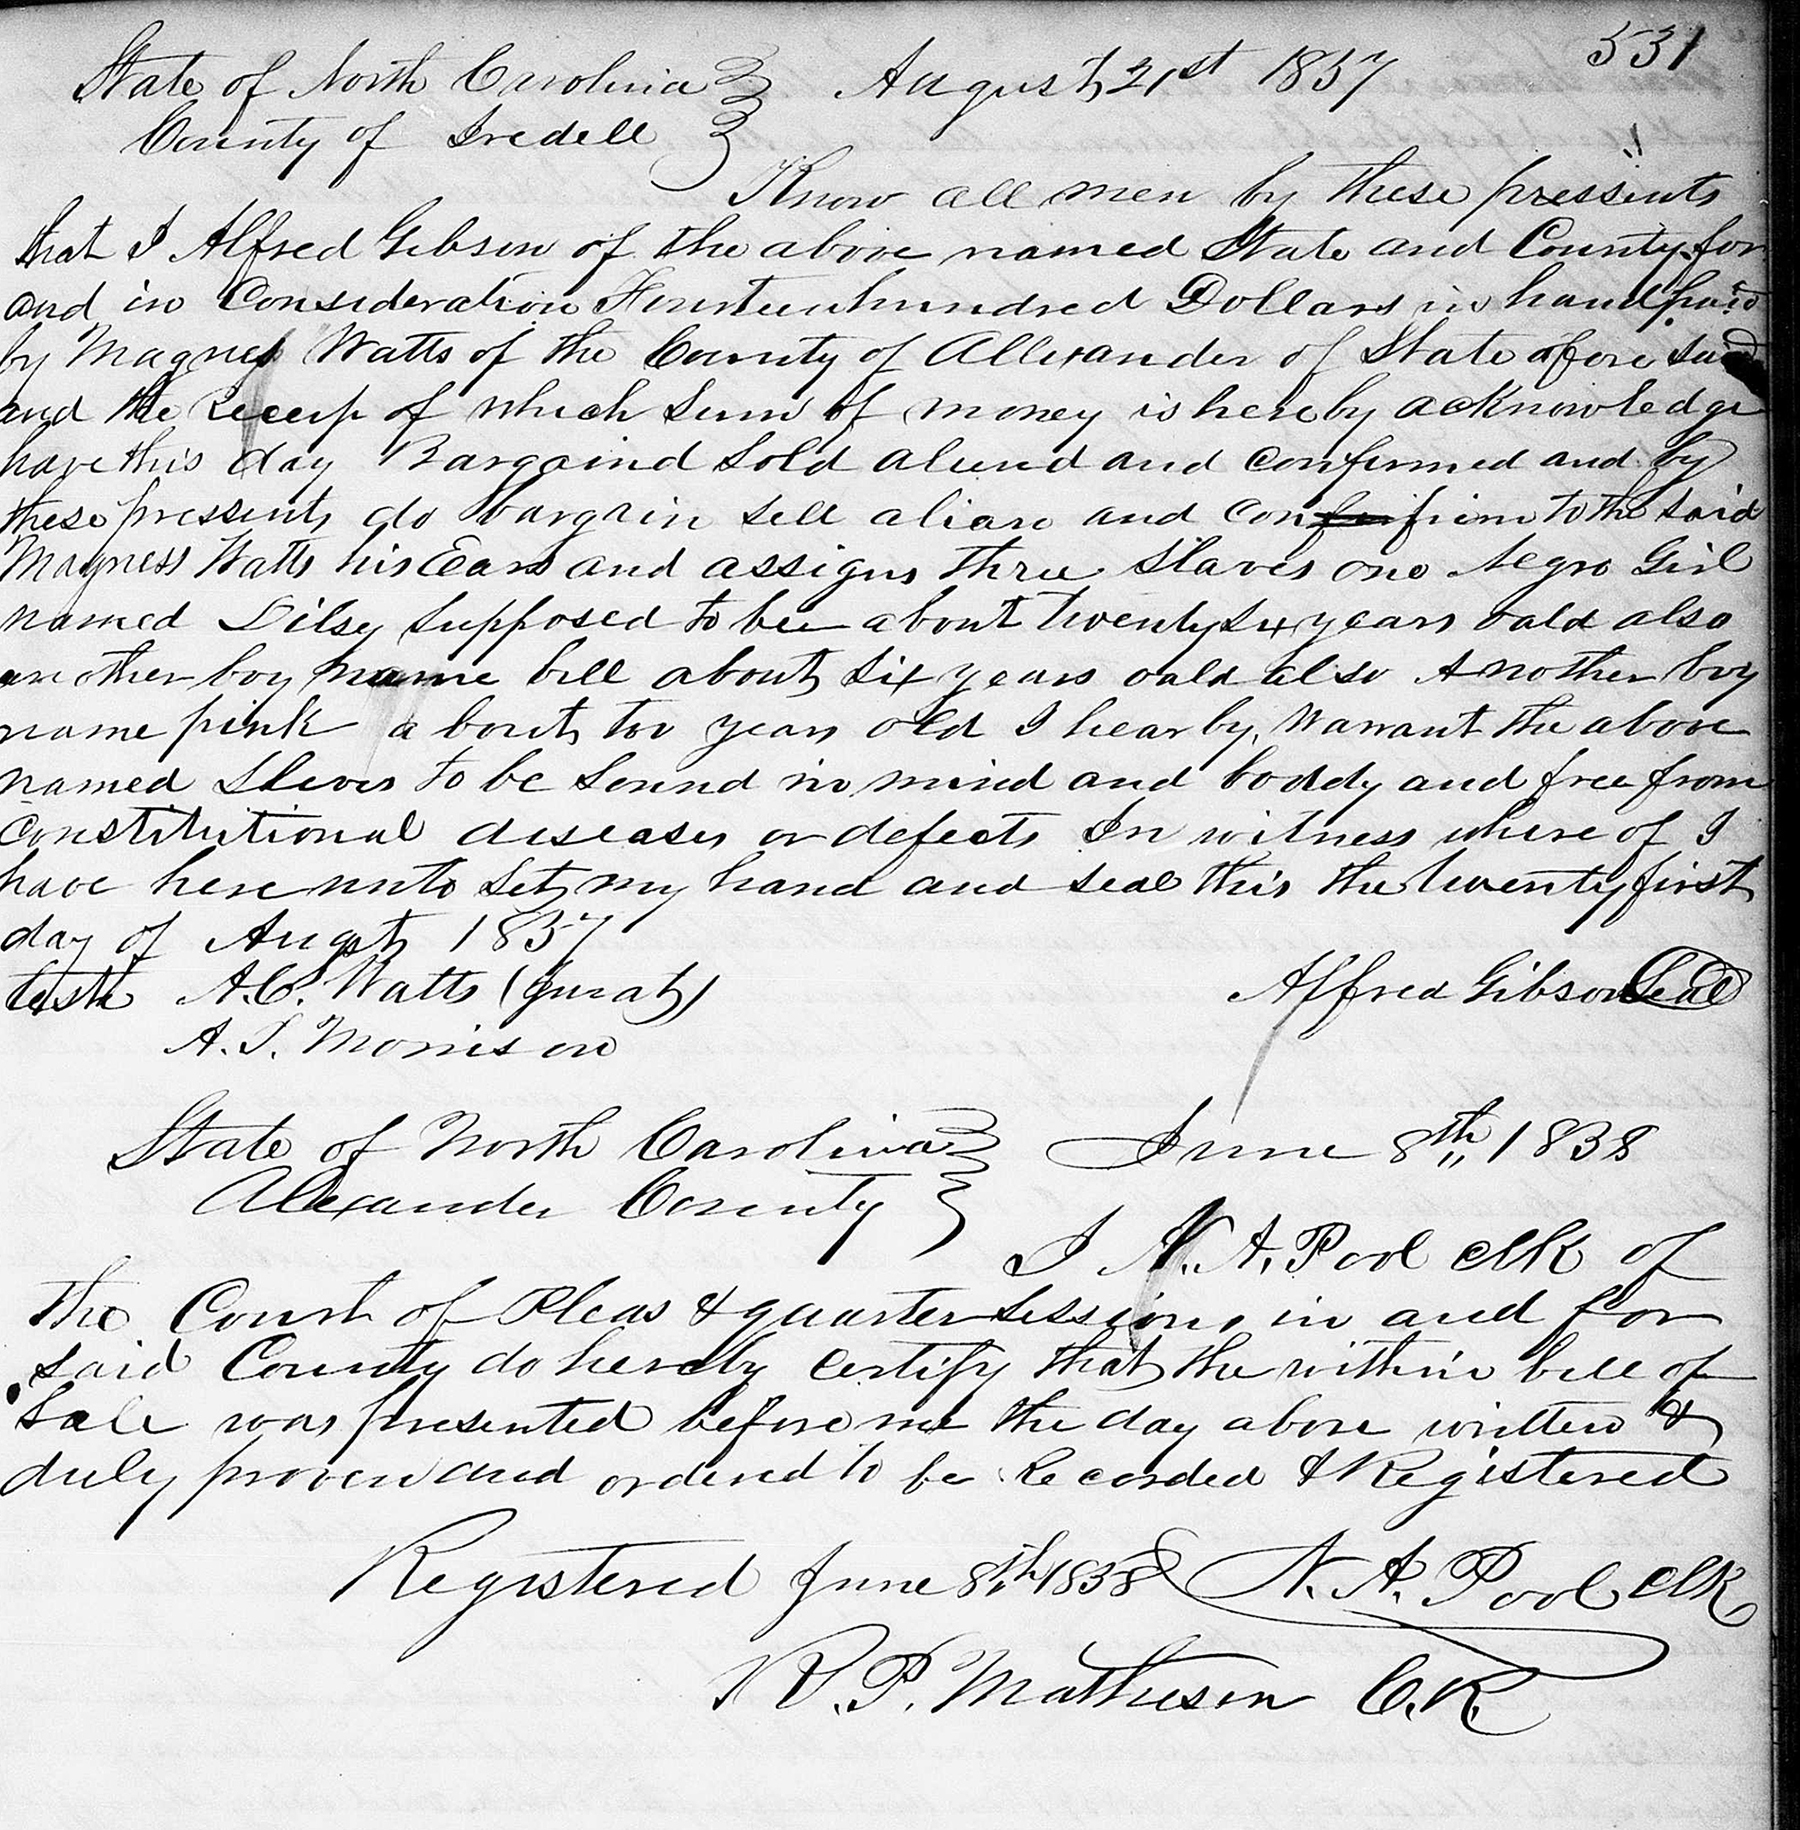 531
State of North Carolina August 21st 1857
County of Iredell
Know all men by these pressents
that I Alfred Gibson of the above named State and County for
and in Consideration Fourteenhundred Dollars in hand paid
by Magness Watts of the County of Allexander of State afore said
and the Receip of which Sum of money is hereby acknowledge
have this day Bargaind Sold aliend and confirmed and by
these pressents do bargain sell alian and confirm to the said
Magness Watts his Ears and assigns three Slaves one Negro Girl
named Dilsy supposed to bee about twenty six years oald also
another boy name bill about six years oald also Another boy
name pink about too years old I hearby, warrant the above
named Slaves to be Sound in mind and boddy and free from
Constitutional diseases or defects In witness where of I
have here unto Set my hand and seal this the twenty first
day of Augst 1857
teste A.C. Watts (Jurat) Alfred Gibson Seal
A. S. Morrison
State of North Carolina June 8th 1858
Alexander County
I N. A. Pool clk of
the Court of Pleas & quarter Sessions in and for
said County do hereby certify that the within bill of
Sale was presented before me the day above written &
duly proven and ordered to be Recorded & Registered
Registered June 8th 1858 N. A. Pool clk
R. P. Matheson C. R.